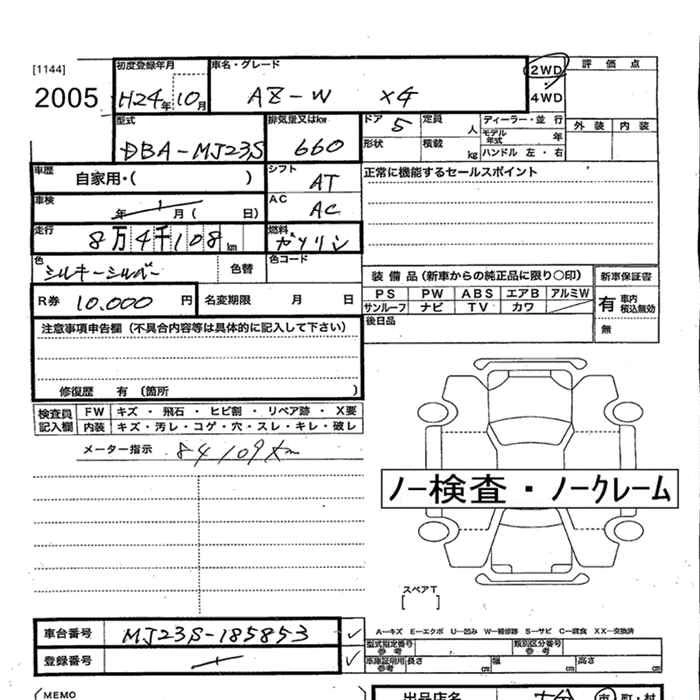 [1144]
2005
初度登録年月
H24年10月
車名・グレード
AZ-W XG
2WD
4WD
評価点
外装 内装
型式
DBA-MJ23S
排気量又はkw
660
ドア
5
定員
人
形状
積載
kg
ディーラー・並行
モデル年式
年
ハンドル 左・右
車歴
自家用・( )
シフト
AT
正常に機能するセールスポイント
車検
年 月( 日)
AC
AC
走行
8万4千108km
燃料
ガソリン
色
シルキーシルバー
色替
色コード
装備品(新車からの純正品に限り○印)
新車保証書
PS PW ABS エアB アルミW
サンルーフ ナビ TV カワ
有 車内積込無効
無
R券 10.000円
名変期限 月 日
後日品
注意事項申告欄(不具合内容等は具体的に記入して下さい)
修復歴 有 (箇所 )
検査員 FW キズ・飛石・ヒビ割・リペア跡・X要
記入欄 内装 キズ・汚レ・コゲ・穴・スレ・キレ・破レ
メーター指示 84109km
ノー検査・ノークレーム
スペアT
[ ]
車台番号 MJ23S-185853
A―キズ E―エクボ U―凹み W―補修跡 S―サビ C―腐食 XX―交換済
登録番号
型式指定番号 参考
類別区分番号 参考
車庫証明用 参考 長さ cm 幅 cm 高さ cm
(MEMO
出品店名
大分 市・町・村